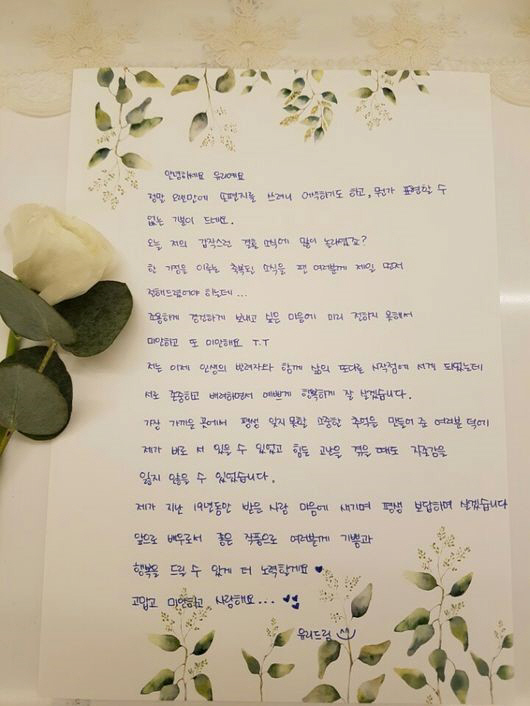 안녕하세요 유리에요
정말 오랜만에 손편지를 쓰려니 어색하기도 하고, 뭔가 표현할 수
없는 기분이 드네요.
오늘 저의 갑작스런 결혼 소식에 많이 놀라셨죠?
한 가정을 이루는 축복된 소식을 팬 여러분께 제일 먼저
전해드렸어야 하는데...
조용하게 경건하게 보내고 싶은 마음에 미리 전하지 못해서
미안하고 또 미안해요 T.T
저는 이제 인생의 반려자와 함께 삶의 또다른 시작점에 서게 되었는데
서로 존중하고 배려하면서 예쁘게 행복하게 잘 살겠습니다.
가장 가까운 곳에서 평생 잊지못할 소중한 추억을 만들어 준 여러분 덕에
제가 바로 서 있을 수 있었고 힘든 고난을 겪을 때도 자존감을
잃지 않을 수 있었습니다.
제가 지난 19년동안 받은 사랑 마음에 새기며 평생 보답하며 살겠습니다
앞으로 배우로서 좋은 작품으로 여러분께 기쁨과
행복을 드릴 수 있게 더 노력할게요 ♥
고맙고 미안하고 사랑해요... ♥♥
유리드림